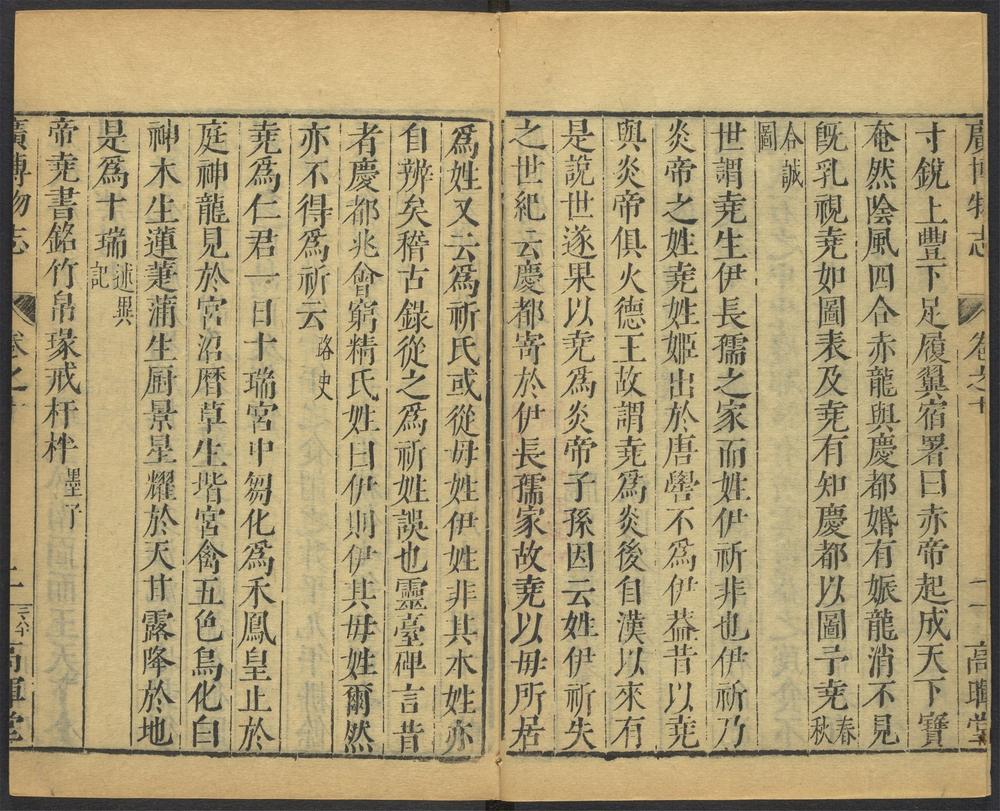 廣博物志 卷之十 一 高暉堂
寸銳上豐下足履翼宿署曰赤帝起成天下寶
奄然陰風四合赤龍與慶都婚有娠龍消不見
旣乳視堯如圖表及堯有知慶都以圖予堯春秋
合誠圖
世謂堯生伊長孺之家而姓伊祈非也伊祈乃
炎帝之姓堯姓姬出於唐嚳不爲伊葢昔以堯
與炎帝俱火德王故謂堯爲炎後自漢以來有
是說世遂果以堯爲炎帝子孫因云姓伊祈失
之世紀云慶都寄於伊長孺家故堯以毋所居
爲姓又云爲祈氏或從毋姓伊姓非其本姓亦
自辨矣稽古錄從之爲祈姓誤也靈臺碑言昔
者慶都兆會窮精氏姓曰伊則伊其毋姓爾然
亦不得爲祈云路史
堯爲仁君一日十瑞宮中芻化爲禾鳳皇止於
庭神龍見於宮沼曆草生堦宮禽五色烏化白
神木生蓮萐蒲生厨景星耀於天甘露降於地
是爲十瑞述異記
帝堯書銘竹帛瑑戒杅柈墨子
廣博物志 卷之十 二 高暉堂